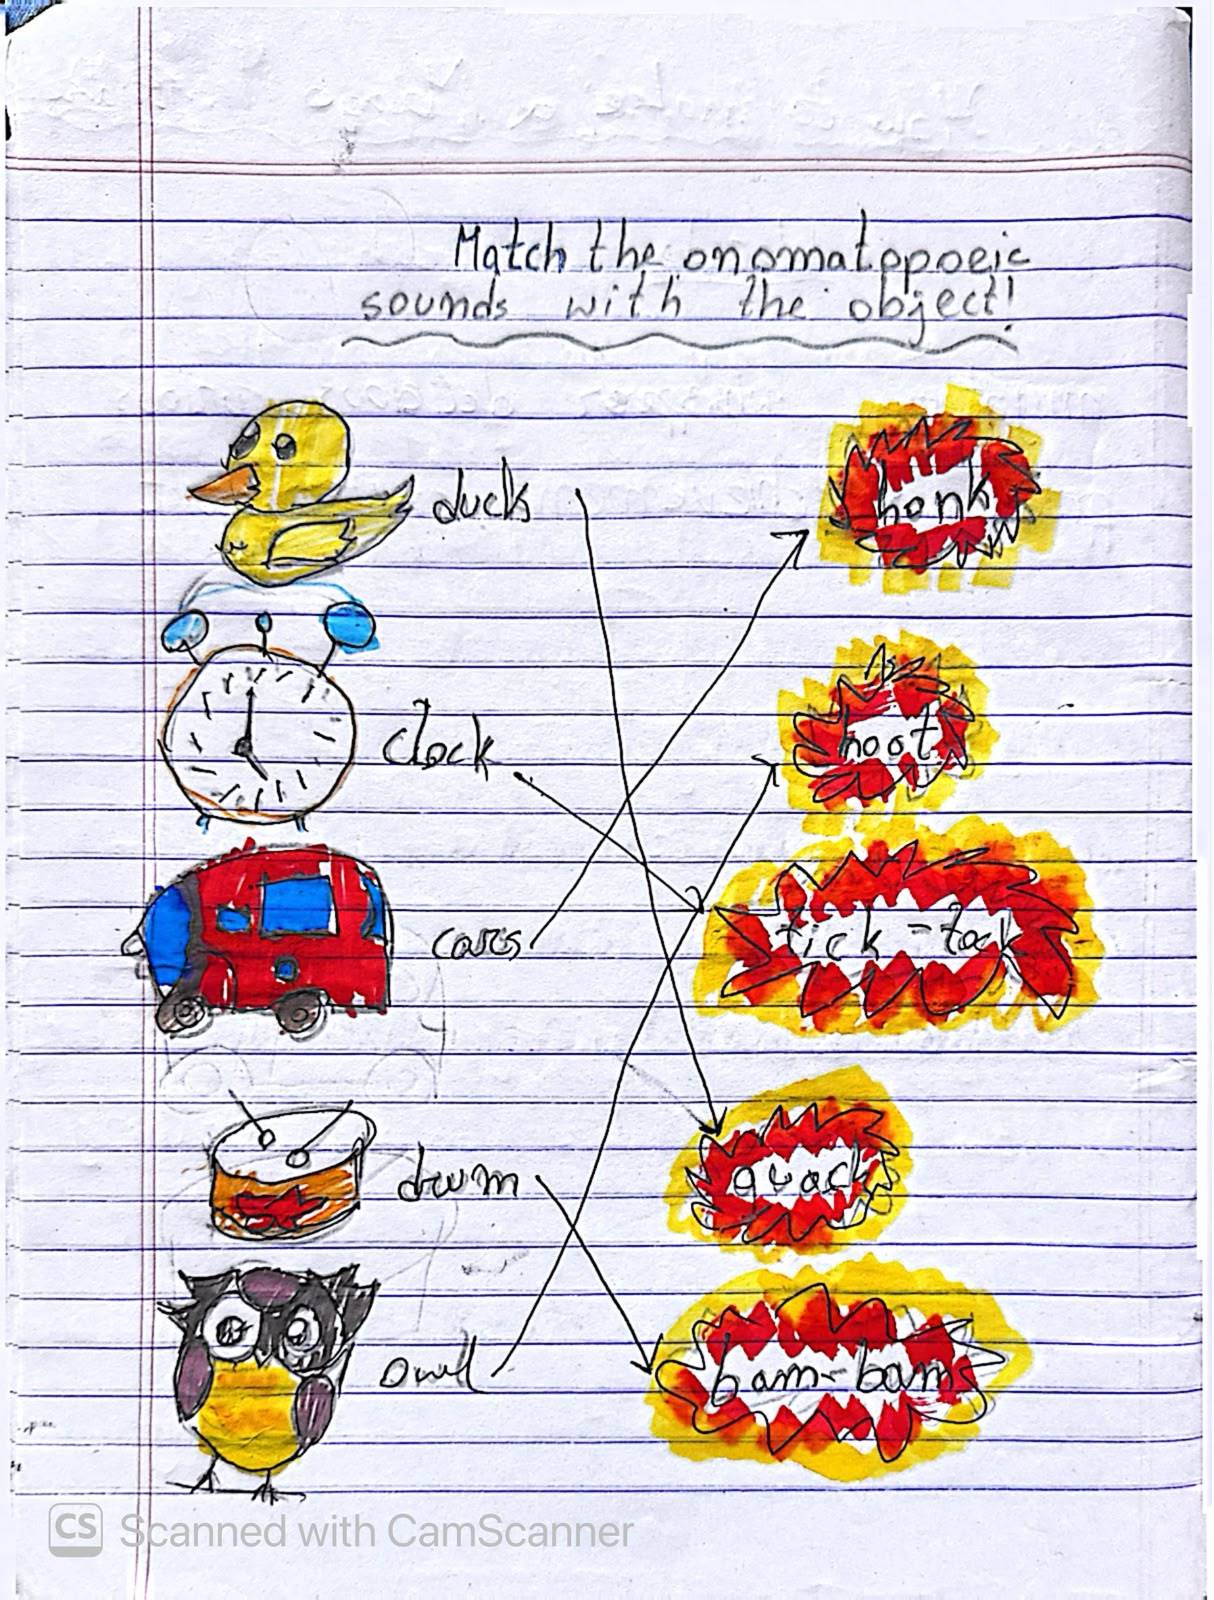 Match the onomatopoeic
sounds with the object!
duck
honk
clock
hoot
cars
tick-tock
drum
quack
owl
bam-bam
CS Scanned with CamScanner